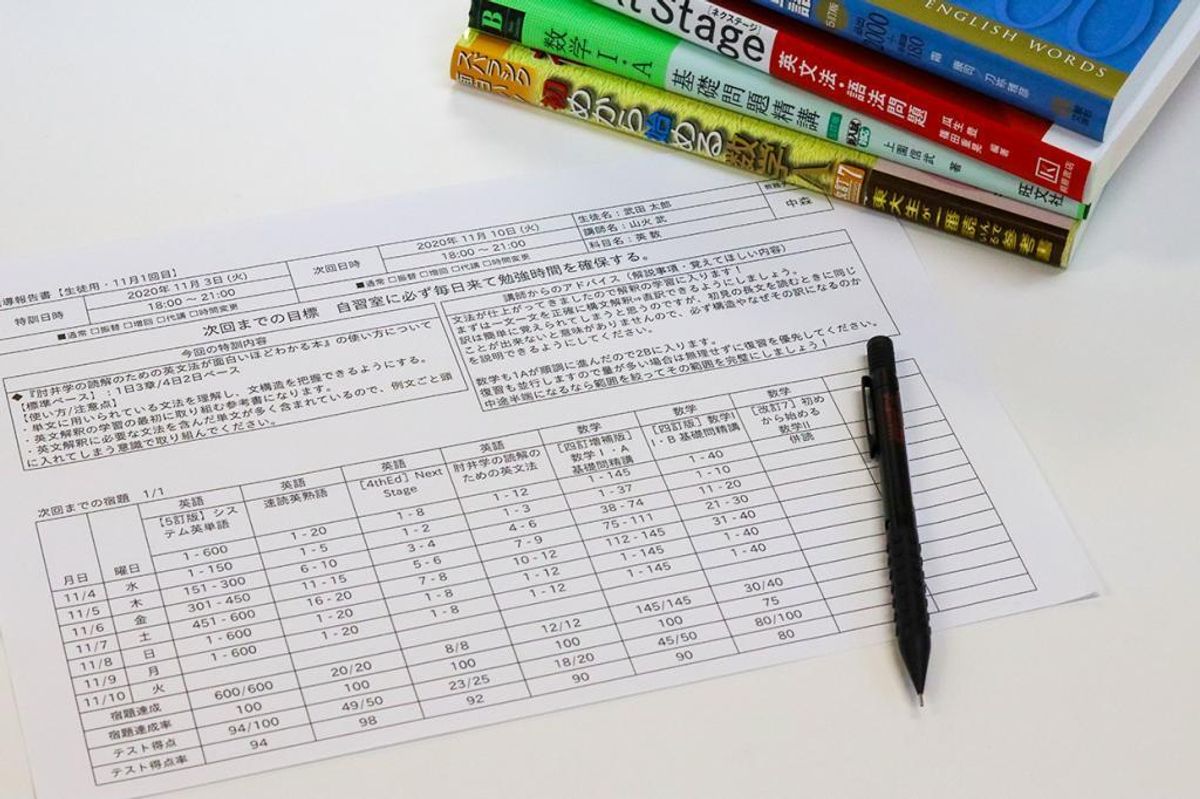 ENGLISH WORDS
5訂版
2000
180
霜 康司 刀祢雅彦
Stage
[ネクステージ]
英文法・語法問題
瓜生 豊
篠田重晃
編著
K
桐原書店
B
数学I・A
基礎問題精講
上園信武 著
旺文社
初めから始める数学A
改訂7
東大生が一番読んでいる参考書
導報告書【生徒用・11月1回目】
特訓日時
2020年 11月 3日(火)
18:00 ～ 21:00
■通常 □振替 □増回 □代講 □時間変更
次回日時
2020年 11月 10日(火)
18:00 ～ 21:00
■通常 □振替 □増回 □代講 □時間変更
生徒名:武田 太郎
講師名:山火 武
科目名:英 数
中森
次回までの目標 自習室に必ず毎日来て勉強時間を確保する。
今回の特訓内容
◆『肘井学の読解のための英文法が面白いほどわかる本』の使い方について
【標準ペース】:1日3章/4日2日ペース
【使い方/注意点】
・単文に用いられている文法を理解し、文構造を把握できるようにする。
・英文解釈の学習の最初に取り組む参考書になります。
・英文解釈に必要な文法を含んだ単文が多く含まれているので、例文ごと頭
に入れてしまう意識で取り組んでください。
講師からのアドバイス(解説事項・覚えてほしい内容)
文法が仕上がってきましたので解釈の学習に入ります!
まずは一文一文を正確に構文解釈⇒直訳できるようにしましょう。
訳は簡単に覚えられてしまうと思うのですが、初見の長文を読むときに同じ
ことが出来ないと意味がありませんので、必ず構造やなぜその訳になるのか
を説明できるようにしてください。
数学も1Aが順調に進んだので2Bに入ります。
復習も並行しますので量が多い場合は無理せずに復習を優先してください。
中途半端になるなら範囲を絞ってその範囲を完璧にしましょう!
次回までの宿題 1/1
月日 曜日 英語 英語 英語 英語 数学 数学 数学
【5訂版】システム英単語 速読英熟語 [4thEd] Next Stage 肘井学の読解のための英文法 [四訂増補版] 数学I・A 基礎問精講 [四訂版] 数学II・B 基礎問精講 [改訂7] 初めから始める数学II
1 - 600 1 - 20 1 - 8 1 - 12 1 - 145 1 - 40 併読
11/4 水 1 - 150 1 - 5 1 - 2 1 - 3 1 - 37 1 - 10
11/5 木 151 - 300 6 - 10 3 - 4 4 - 6 38 - 74 11 - 20
11/6 金 301 - 450 11 - 15 5 - 6 7 - 9 75 - 111 21 - 30
11/7 土 451 - 600 16 - 20 7 - 8 10 - 12 112 - 145 31 - 40
11/8 日 1 - 600 1 - 20 1 - 8 1 - 12 1 - 145 1 - 40
11/9 月 1 - 600 1 - 20 1 - 8 1 - 12 1 - 145 1 - 40
11/10 火
宿題達成 600/600 20/20 8/8 12/12 145/145 30/40
宿題達成率 100 100 100 100 100 75
テスト得点 94/100 49/50 23/25 18/20 45/50 80/100
テスト得点率 94 98 92 90 90 80